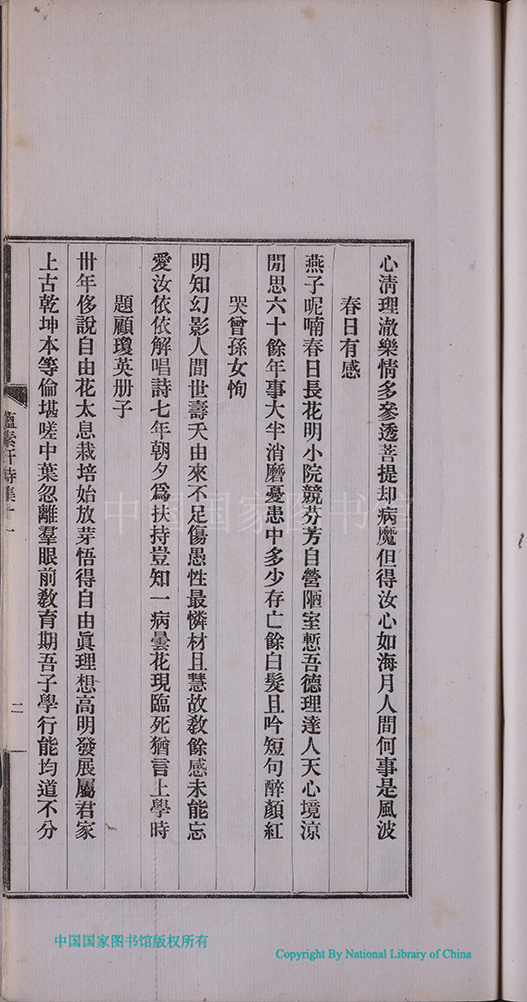 心清理澈樂情多參透菩提却病魔但得汝心如海月人間何事是風波
春日有感
燕子呢喃春日長花明小院競芬芳自營陋室慙吾德理達人天心境涼
閒思六十餘年事大半消磨憂患中多少存亡餘白髮且吟短句醉顏紅
哭曾孫女恂
明知幻影人間世壽夭由來不足傷愚性最憐材且慧故教餘感未能忘
愛汝依依解唱詩七年朝夕爲扶持豈知一病曇花現臨死猶言上學時
題顧瓊英册子
卅年侈說自由花太息栽培始放芽悟得自由眞理想高明發展屬君家
上古乾坤本等倫堪嗟中葉忽離羣眼前教育期吾子學行能均道不分
蘊素軒詩集十一
二
中国国家图书馆
中国国家图书馆版权所有
Copyright By National Library of China